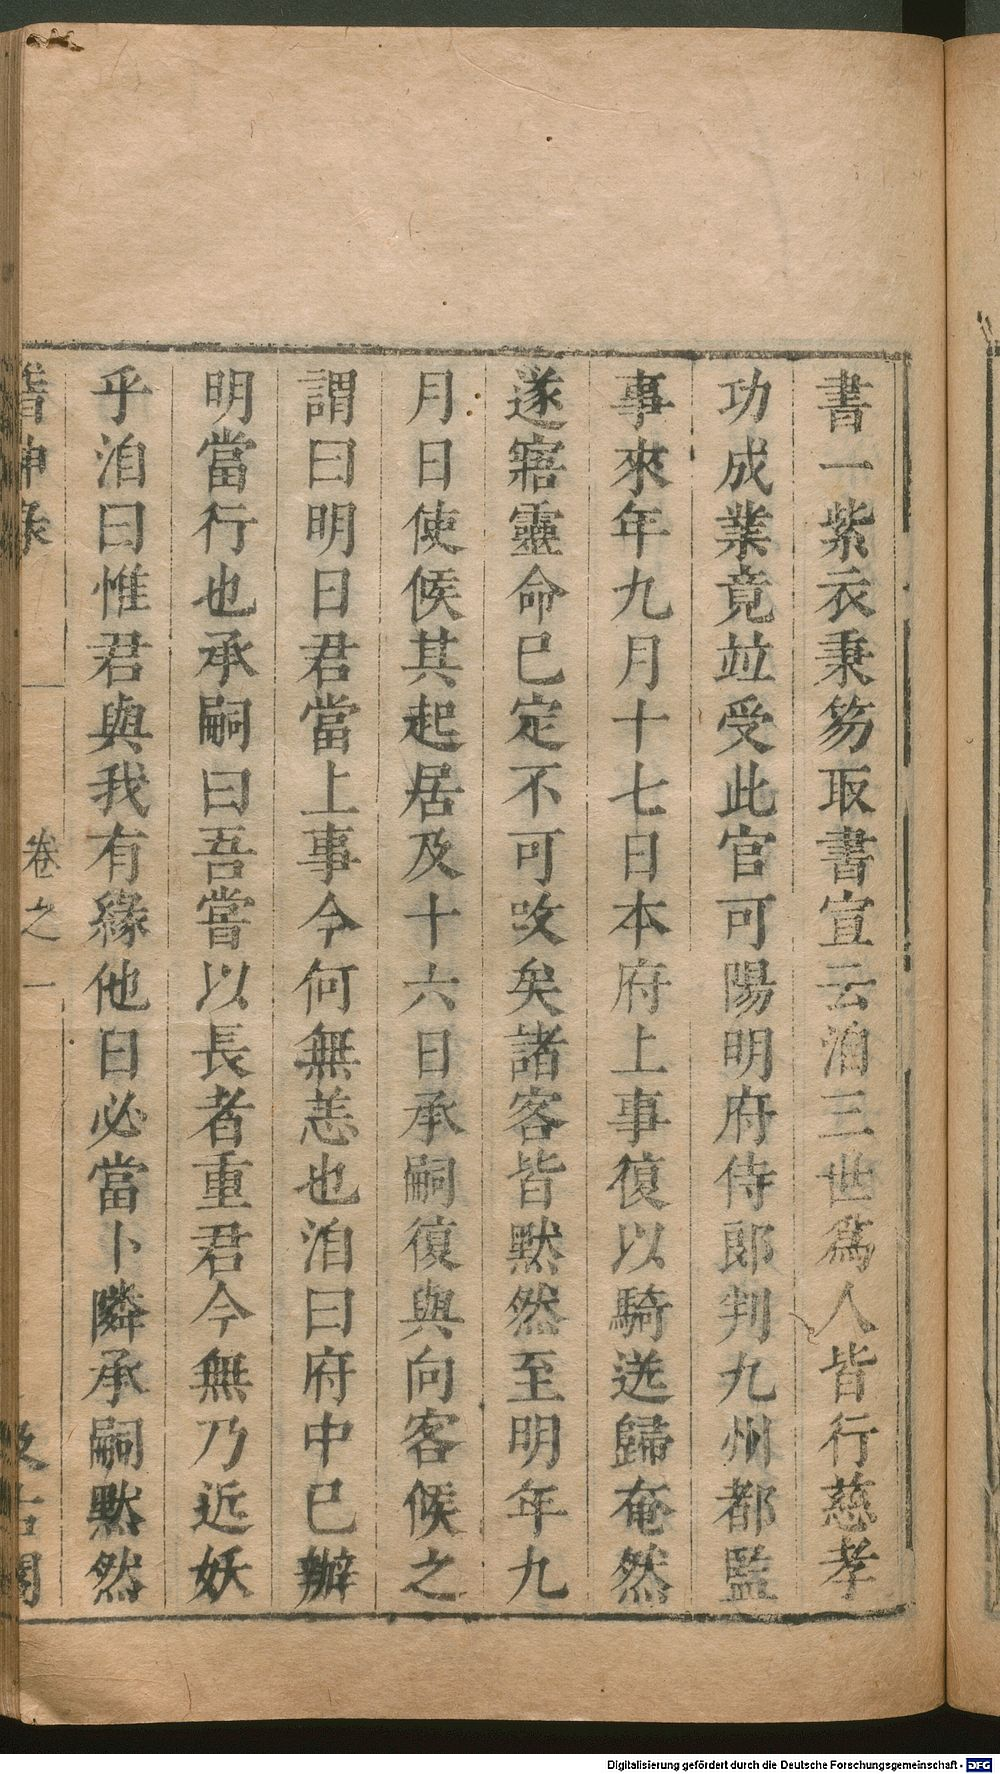 書一紫衣秉笏取書宣云洎三世爲人皆行慈孝
功成業竟竝受此官可陽明府侍郎判九州都監
事來年九月十七日本府上事復以騎送歸奄然
遂寤靈命已定不可改矣諸客皆默然至明年九
月日使候其起居及十六日承嗣復與向客候之
謂曰明日君當上事今何無恙也洎曰府中已辦
明當行也承嗣曰吾嘗以長者重君今無乃近妖
乎洎曰惟君與我有緣他日必當卜隣承嗣默然
稽神录 卷之一 汲古閣
Digitalisierung gefördert durch die Deutsche Forschungsgemeinschaft - DFG